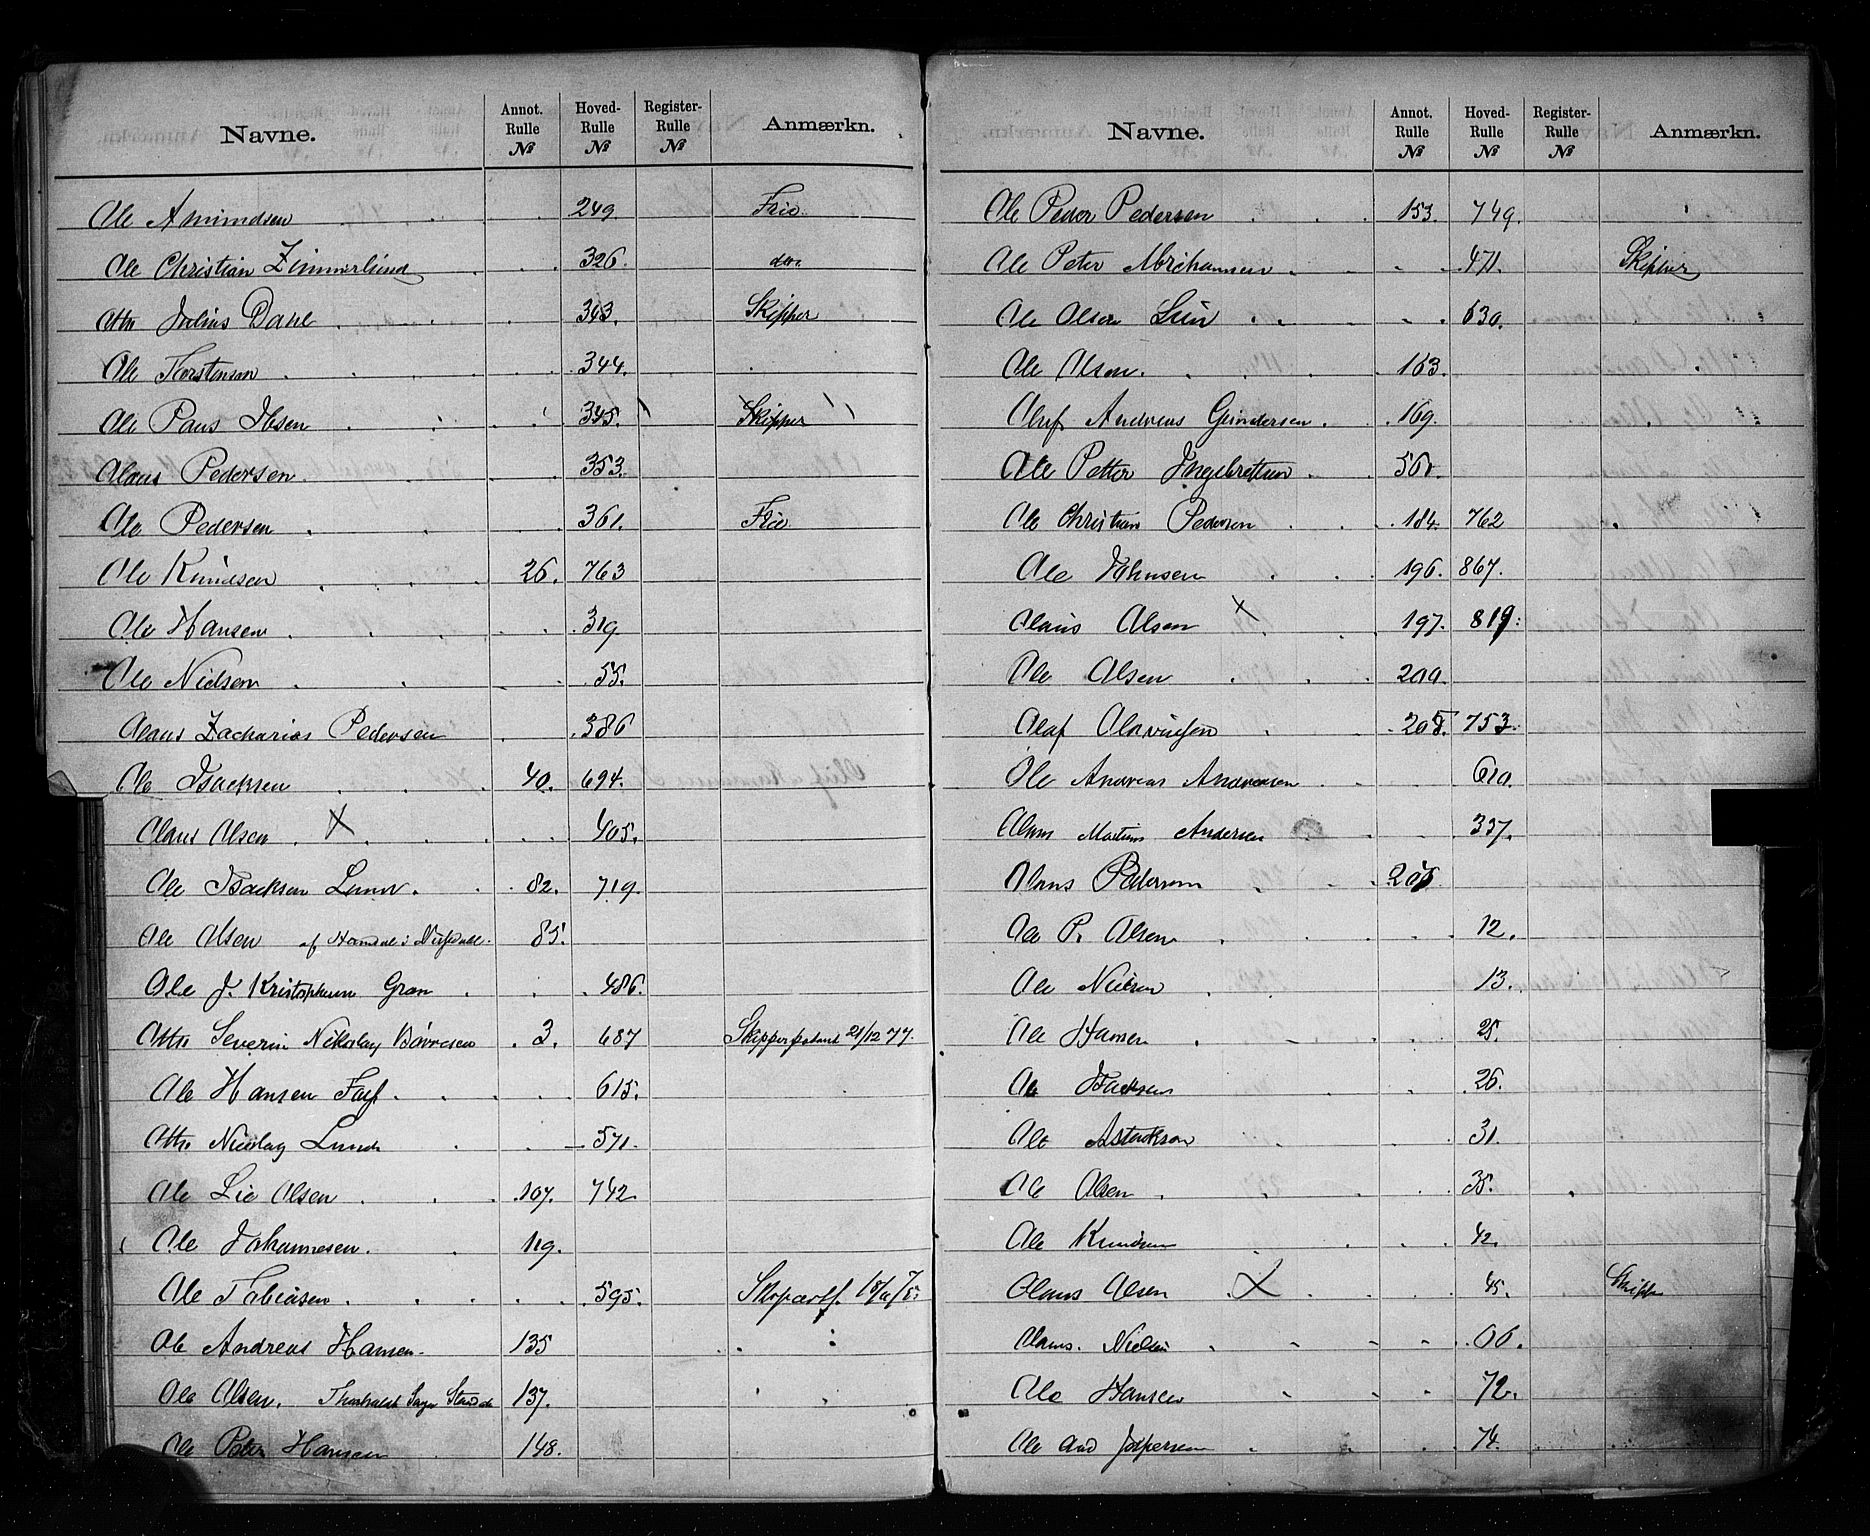 Navne. Annot. Rulle № Hoved- Rulle № Register- Rulle № Anmærkn.
Ole Amundsen 249. Frie.
Ole Christian Zimmerlund 326. do.
Otto Julius Dahl 343. Skipper
Ole Torstensen 344.
Ole Paus Ibsen 345. Skipper
Olaus Pedersen 353.
Ole Pedersen 361. Frie.
Ole Knudsen 26. 763
Ole Hansen 319.
Ole Nielsen 55.
Olaus Zacharias Pedersen 386
Ole Isacksen 40. 694.
Olaus Olsen X 405.
Ole Isacksen Lunde. 82. 719.
Ole Olsen af 85.
Ole J. Kristophersen Gran 486.
Otto Severin Nikolay Børresen 3. 687 Skipperpatent 21/12 77.
Ole Hansen 615.
Otto Nicolay Lunde 571.
Ole Lie Olsen 107. 742.
Ole Johannesen. 119.
Ole Tobiasen 595.
Ole Andreas Hansen 135
Ole Olsen. 137.
Ole Peter Hansen 148.
Navne. Annot. Rulle № Hoved- Rulle № Register- Rulle № Anmærkn.
Ole Peder Pedersen 153. 749.
Ole Peter Abrahamsen 471. Skipper
Ole Olsen Lien 630.
Ole Olsen. 163.
Oluf Andreas Gundersen 169.
Ole Petter Ingebretsen 561.
Ole Christian Pedersen 184. 762
Ole Johnsen 196. 867.
Olaus Olsen X 197. 819:
Ole Olsen 200.
Olaf 753.
Ole Andreas Andersen 610.
Olaus Martin Andersen 337.
Olaus Pedersen
Ole P. Olsen 12.
Ole Nielsen 13.
Ole Hansen 25.
Ole Isacksen 26.
Ole 31.
Ole Olsen 35.
Ole Knudsen 42.
Olaus Olsen X 45. Skipper
Olaus Nielsen 66.
Ole Hansen 72.
Ole And Jespersen 74.